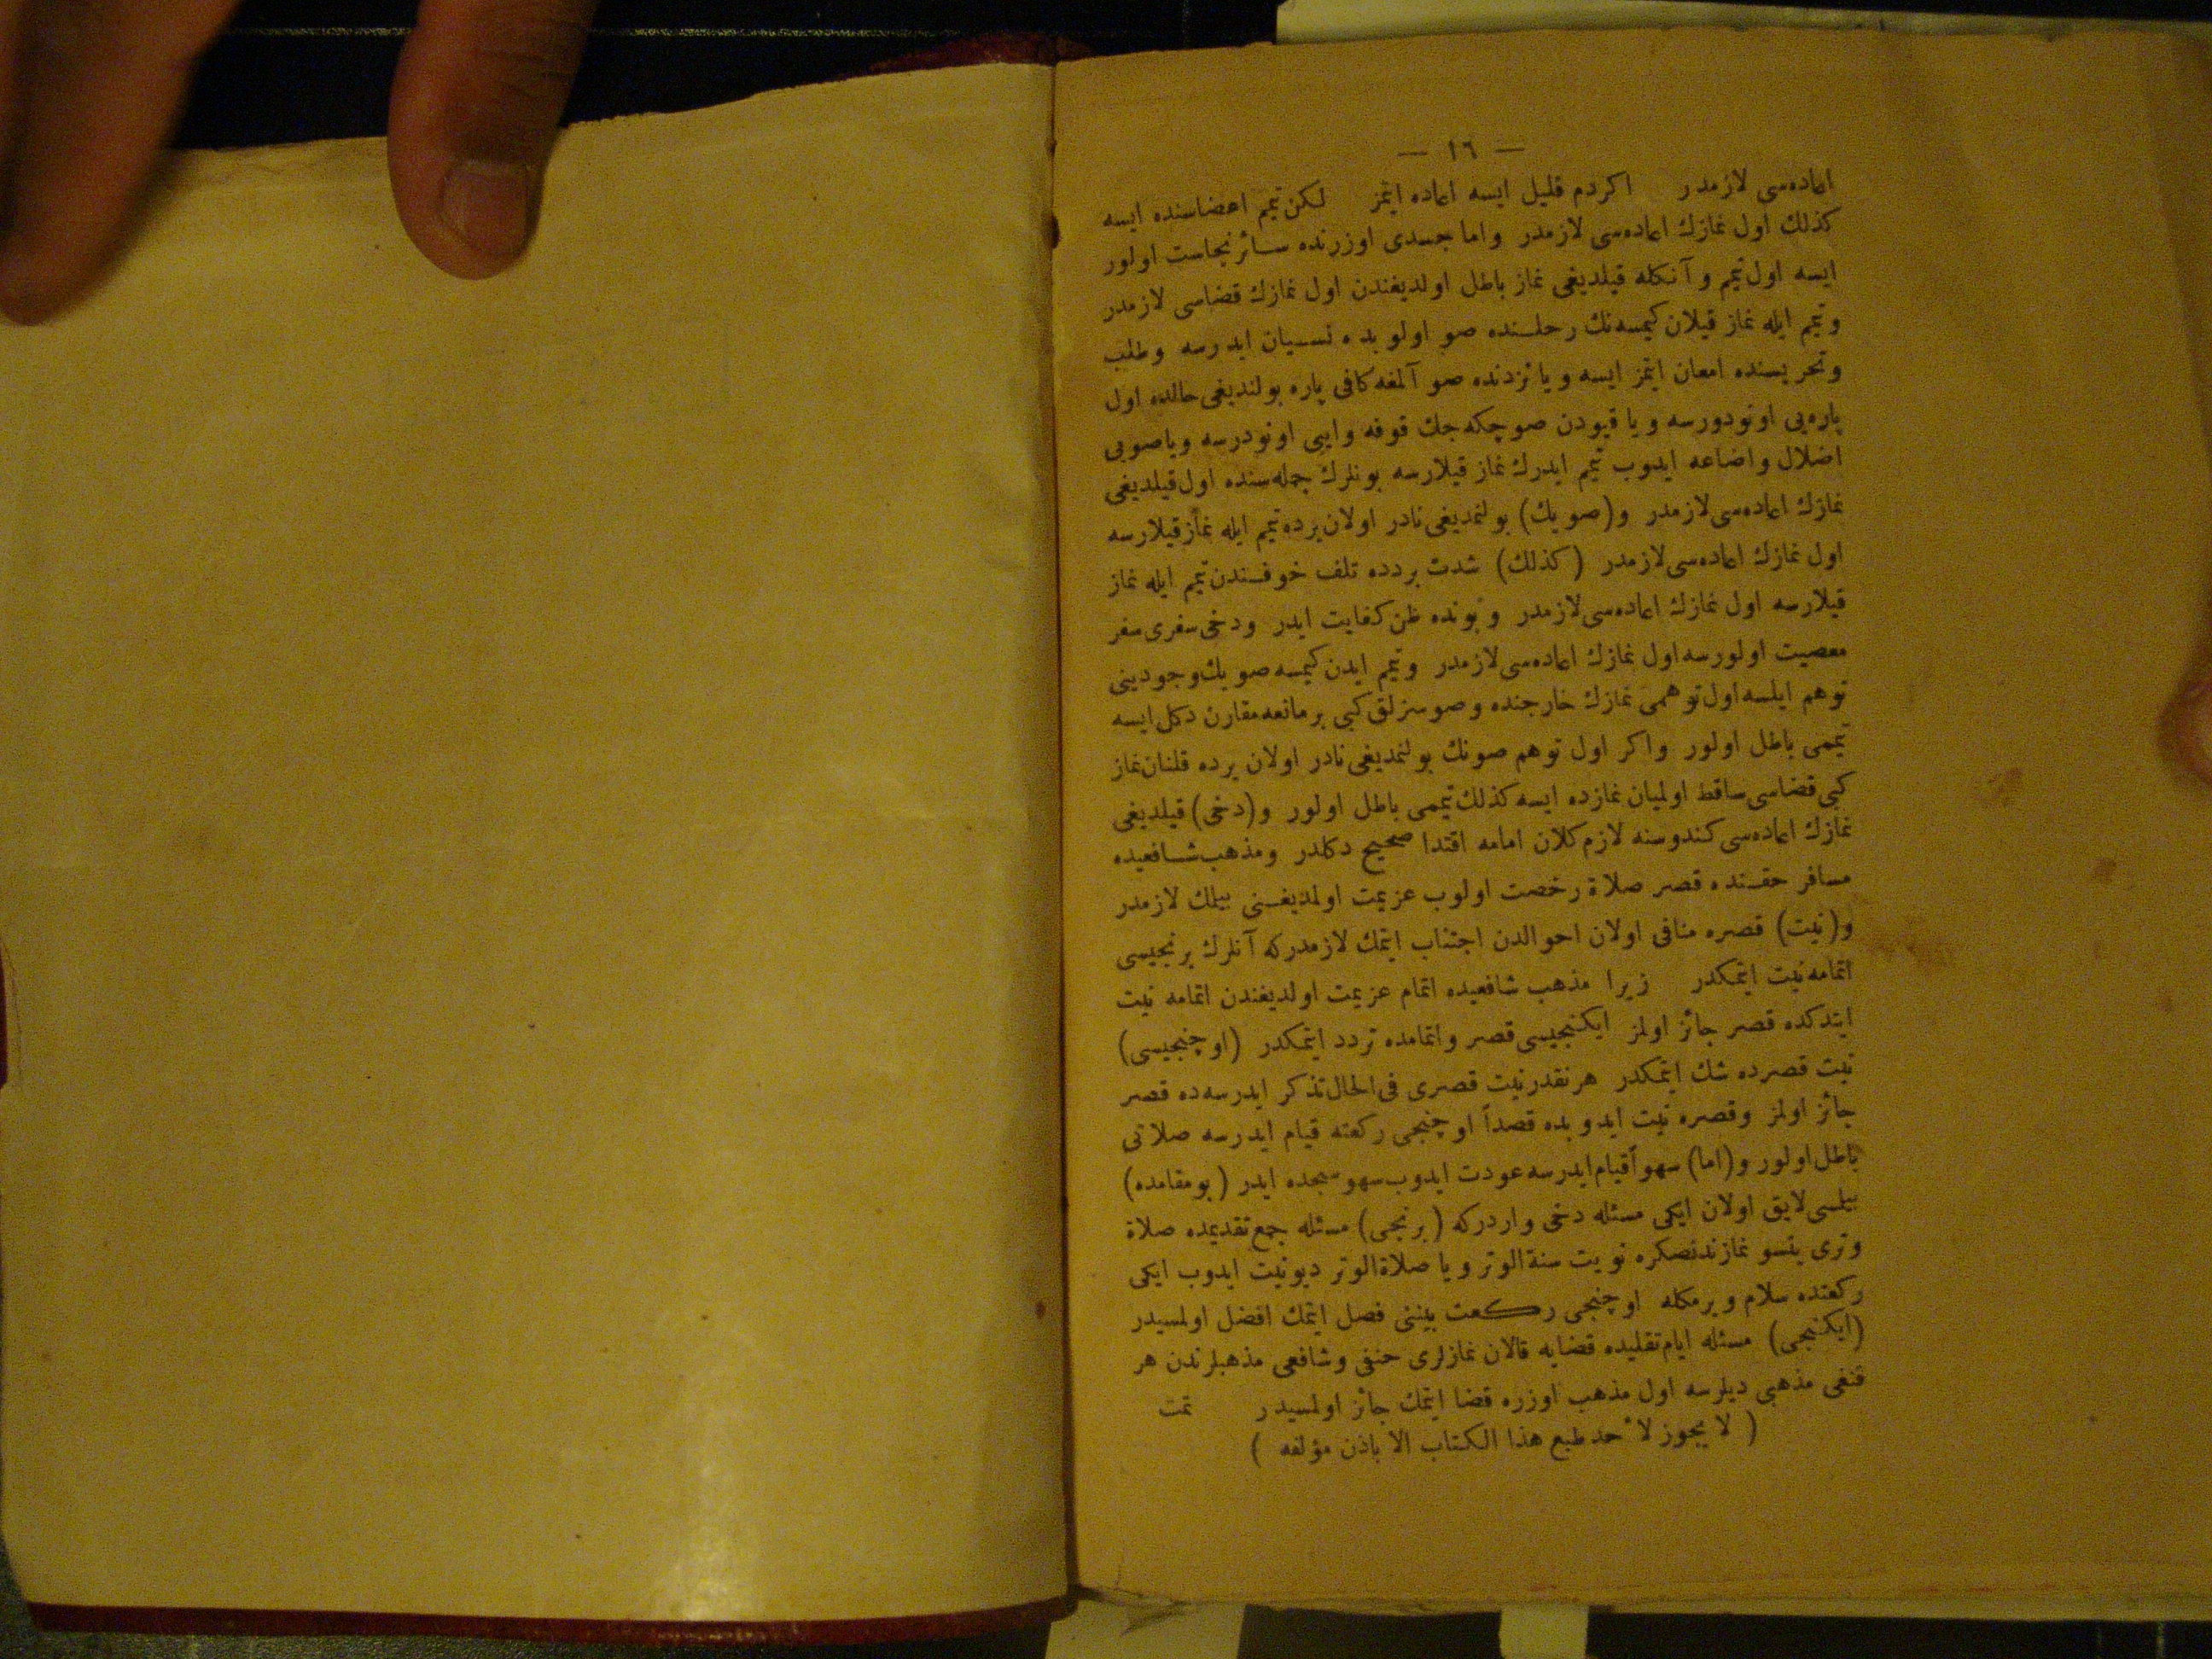 — ١٦ —
اعاده‌سی لازمدر اكر دم قلیل ایسه اعاده ایتمز لكن تیمم اعضاسنده ایسه
كذلك اول نمازك اعاده‌سی لازمدر واما جسدی اوزرنده سائر نجاست اولور
ایسه اول تیمم و آنكله قیلدیغی نماز باطل اولدیغندن اول نمازك قضاسی لازمدر
و تیمم ایله نماز قیلان كیمسه‌نك رحلنده صو اولوبده نسیان ایدرسه وطلب
وتحریسنده امعان ایتمز ایسه ویا نزدنده صو آلمغه كافی پاره بولندیغی حالده اول
پاره‌یی اونودورسه ویا قیودن صو چكه‌جك قوفه وایپی اونودرسه ویا صویی
اضلال واضاعه ایدوب تیمم ایدرك نماز قیلارسه بونلرك جمله‌سنده اول قیلدیغی
نمازك اعاده‌سی لازمدر و(صویك) بولنمدیغی نادر اولان یرده تیمم ایله نماز قیلارسه
اول نمازك اعاده‌سی لازمدر (كذلك) شدت بردده تلف خوفندن تیمم ایله نماز
قیلارسه اول نمازك اعاده‌سی لازمدر وبونده ظن كفایت ایدر ودخی سفری سفر
معصیت اولورسه اول نمازك اعاده‌سی لازمدر وتیمم ایدن كیمسه صویك وجودینی
توهم ایلسه اول توهمی نمازك خارجنده وصوسزلق كبی بر مانعه مقارن دكل ایسه
تیممی باطل اولور واكر اول توهم صونك بولنمدیغی نادر اولان یرده قلنان نماز
كبی قضاسی ساقط اولمیان نمازده ایسه كذلك تیممی باطل اولور و(دخی) قیلدیغی
نمازك اعاده‌سی كندوسنه لازم كلان امامه اقتدا صحیح دكلدر ومذهب شافعیده
مسافر حقنده قصر صلاة رخصت اولوب عزیمت اولمدیغنی بیلمك لازمدر
و(نیت) قصره منافی اولان احوالدن اجتناب ایتمك لازمدركه آنلرك برنجیسی
اتمامه نیت ایتمكدر زیرا مذهب شافعیده اتمام عزیمت اولدیغندن اتمامه نیت
ایتدكده قصر جائز اولمز ایكنجیسی قصر واتمامده تردد ایتمكدر (اوچنجیسی)
نیت قصرده شك ایتمكدر هر نقدر نیت قصری فی الحال تذكر ایدرسه‌ده قصر
جائز اولمز وقصره نیت ایدوبده قصداً اوچنجی ركعته قیام ایدرسه صلاتی
باطل اولور و(اما) سهواً قیام ایدرسه عودت ایدوب سهو سجده ایدر (بومقامده)
بیلسی لایق اولان ایكی مسئله دخی واردركه (برنجی) مسئله جمع تقدیمده صلاة
وتری یتسو نمازندنصكره نویت سنة الوتر ویا صلاة الوتر دیو نیت ایدوب ایكی
ركعتده سلام ویرمكله اوچنجی ركعت بیننی فصل ایتمك افضل اولمسیدر
(ایكنجی) مسئله ایام تقلیده قضایه قالان نمازلری حنفی وشافعی مذهبلرندن هر
قنغی مذهبی دیلرسه اول مذهب اوزره قضا ایتمك جائز اولمسیدر تمت
( لا یجوز لأحد طبع هذا الكتاب الا باذن مؤلفه )